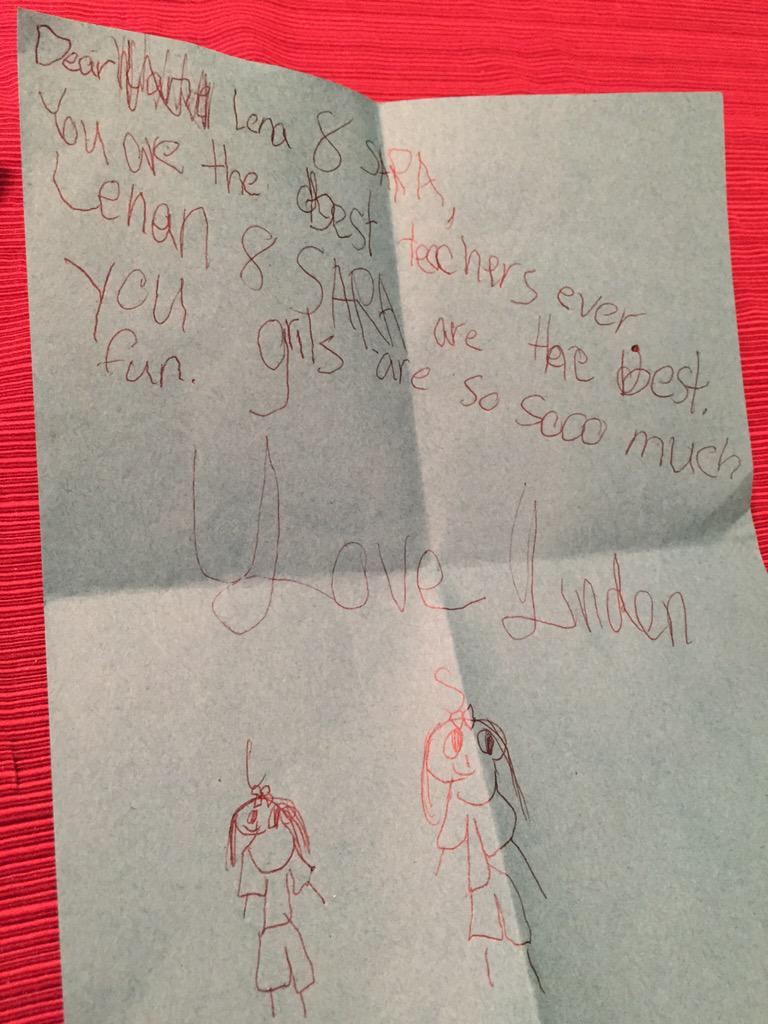 Dear Lena & SARA,
You are the best teachers ever
Lenan & SARA are the best.
you grils are so sooo much
fun.
Love Linden
L
S